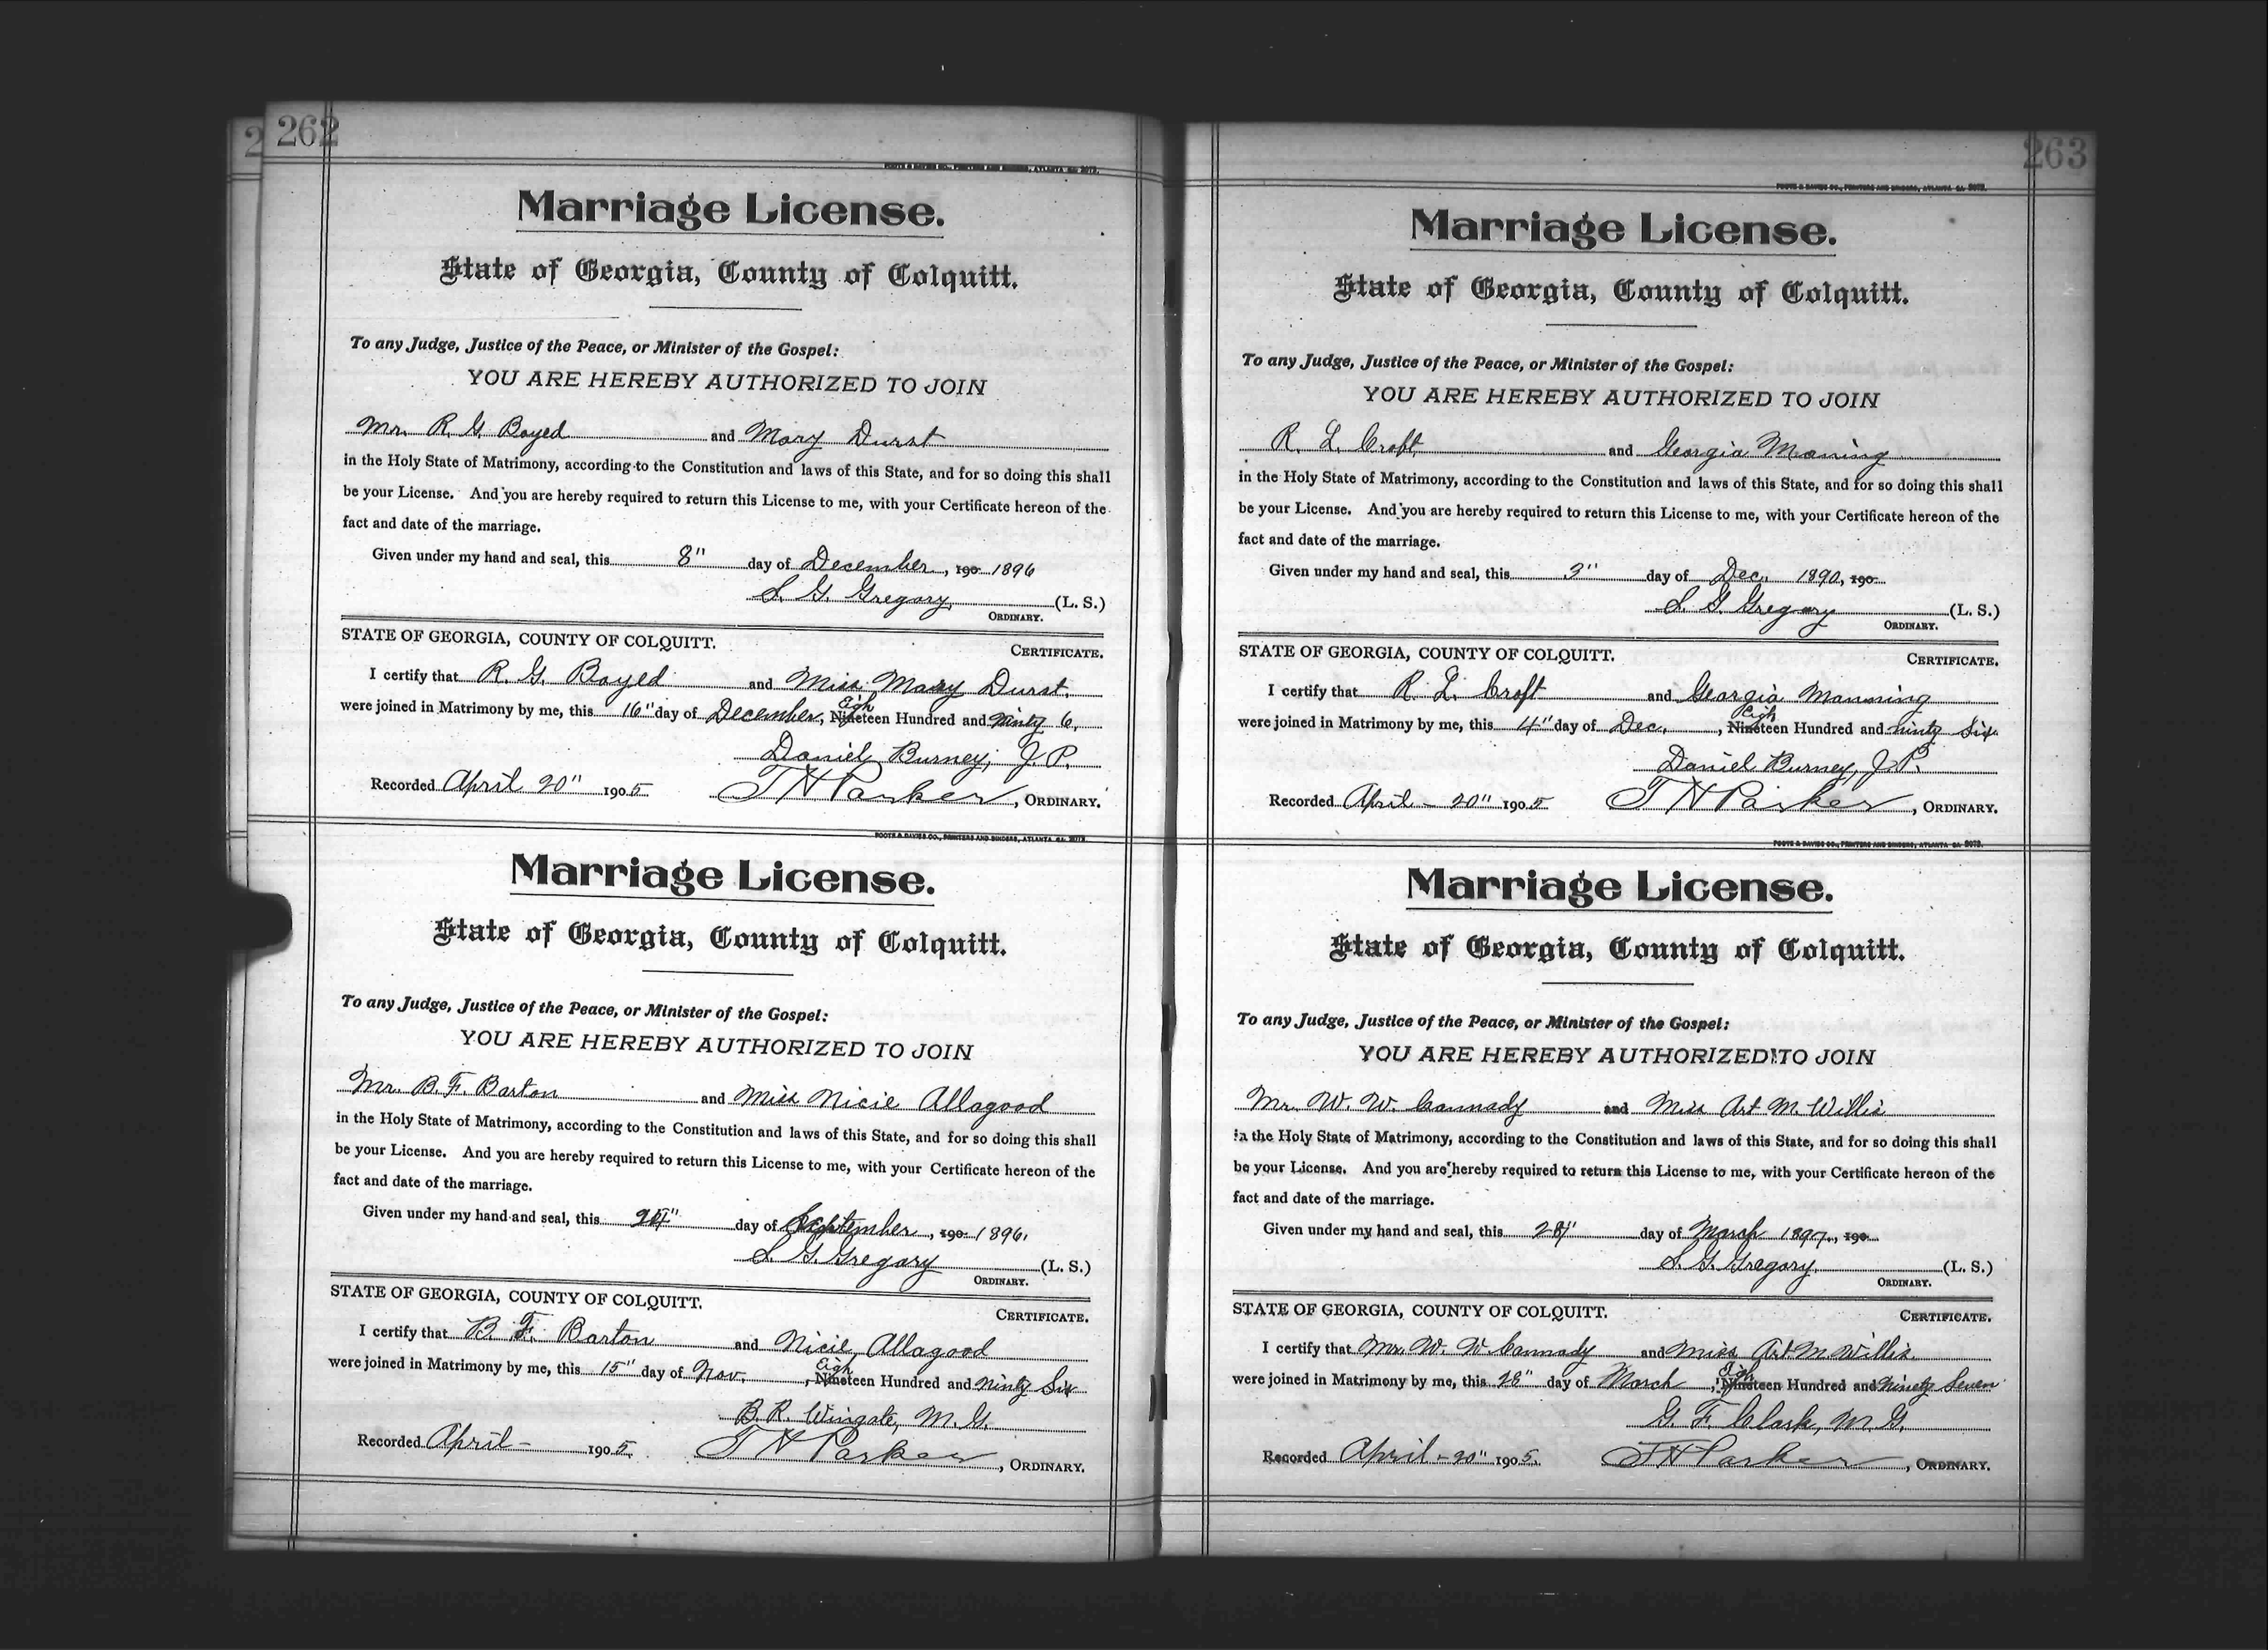 262
FOOTE & DAVIES CO., PRINTERS AND BINDERS, ATLANTA GA. 2072.
Marriage License.
State of Georgia, County of Colquitt.
To any Judge, Justice of the Peace, or Minister of the Gospel:
YOU ARE HEREBY AUTHORIZED TO JOIN
Mr. R. G. Boyed and Mary Durst
in the Holy State of Matrimony, according to the Constitution and laws of this State, and for so doing this shall
be your License. And you are hereby required to return this License to me, with your Certificate hereon of the
fact and date of the marriage.
Given under my hand and seal, this 8" day of December, 190 1896
S. G. Gregory (L. S.)
ORDINARY.
STATE OF GEORGIA, COUNTY OF COLQUITT.
CERTIFICATE.
I certify that R. G. Boyed and Miss Mary Durst.
were joined in Matrimony by me, this 16" day of December, Eighteen Hundred and Ninty 6,
Daniel Burney, J. P.
Recorded April 20" 1905 T H Parker, ORDINARY.
FOOTE & DAVIES CO., PRINTERS AND BINDERS, ATLANTA GA. 2072.
Marriage License.
State of Georgia, County of Colquitt.
To any Judge, Justice of the Peace, or Minister of the Gospel:
YOU ARE HEREBY AUTHORIZED TO JOIN
Mr. B. F. Barton and Miss Nicie Allagood
in the Holy State of Matrimony, according to the Constitution and laws of this State, and for so doing this shall
be your License. And you are hereby required to return this License to me, with your Certificate hereon of the
fact and date of the marriage.
Given under my hand and seal, this day of September, 190 1896.
S. G. Gregory (L. S.)
ORDINARY.
STATE OF GEORGIA, COUNTY OF COLQUITT.
CERTIFICATE.
I certify that B. F. Barton and Nicie Allagood
were joined in Matrimony by me, this 15" day of Nov., Eighteen Hundred and Ninty Six
B. R. Wingate, M. G.
Recorded April - 1905. T H Parker, ORDINARY.
263
FOOTE & DAVIES CO., PRINTERS AND BINDERS, ATLANTA GA. 2072.
Marriage License.
State of Georgia, County of Colquitt.
To any Judge, Justice of the Peace, or Minister of the Gospel:
YOU ARE HEREBY AUTHORIZED TO JOIN
R. L. Croft and Georgia Maning
in the Holy State of Matrimony, according to the Constitution and laws of this State, and for so doing this shall
be your License. And you are hereby required to return this License to me, with your Certificate hereon of the
fact and date of the marriage.
Given under my hand and seal, this 3" day of Dec. 1890, 190
S. G. Gregory (L. S.)
ORDINARY.
STATE OF GEORGIA, COUNTY OF COLQUITT.
CERTIFICATE.
I certify that R. L. Croft and Georgia Manning
were joined in Matrimony by me, this 4" day of Dec., Eighteen Hundred and ninty Six
Daniel Burney, J. P.
Recorded April - 20" 1905 T H Parker, ORDINARY.
FOOTE & DAVIES CO., PRINTERS AND BINDERS, ATLANTA GA. 2072.
Marriage License.
State of Georgia, County of Colquitt.
To any Judge, Justice of the Peace, or Minister of the Gospel:
YOU ARE HEREBY AUTHORIZED TO JOIN
Mr. W. W. Cannady and Miss Art M. Willis
in the Holy State of Matrimony, according to the Constitution and laws of this State, and for so doing this shall
be your License. And you are hereby required to return this License to me, with your Certificate hereon of the
fact and date of the marriage.
Given under my hand and seal, this day of March 1897., 190
S. G. Gregory. (L. S.)
ORDINARY.
STATE OF GEORGIA, COUNTY OF COLQUITT.
CERTIFICATE.
I certify that Mr. W. W Cannady and Miss Art M Willis.
were joined in Matrimony by me, this 28" day of March, Eighteen Hundred and Ninety Seven
G. F. Clark, M. G.
Recorded April - 20" 1905. T H Parker, ORDINARY.